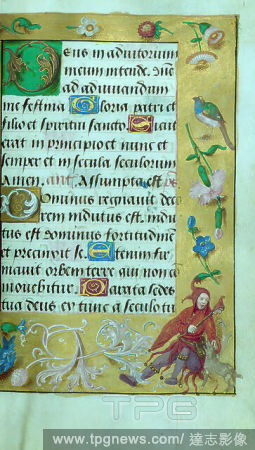 Deus in adiutorium
meum intende. Dne
ad adiuvandum
me festina Gloria patri et
filio et spiritui sancto Sicut
erat in principio et nunc et
semper et in secula seculorum
Amen. ant. Assumpta est
Dominus regnavit deco
rem indutus est. indu
tus est dominus fortitudinem
et precinxit se. Etenim fir
mavit orbem terre qui non co
movebitur. Parata sedes
tua deus ex tunc a seculo tu
TPG
www.tpgnews.com/達志影像